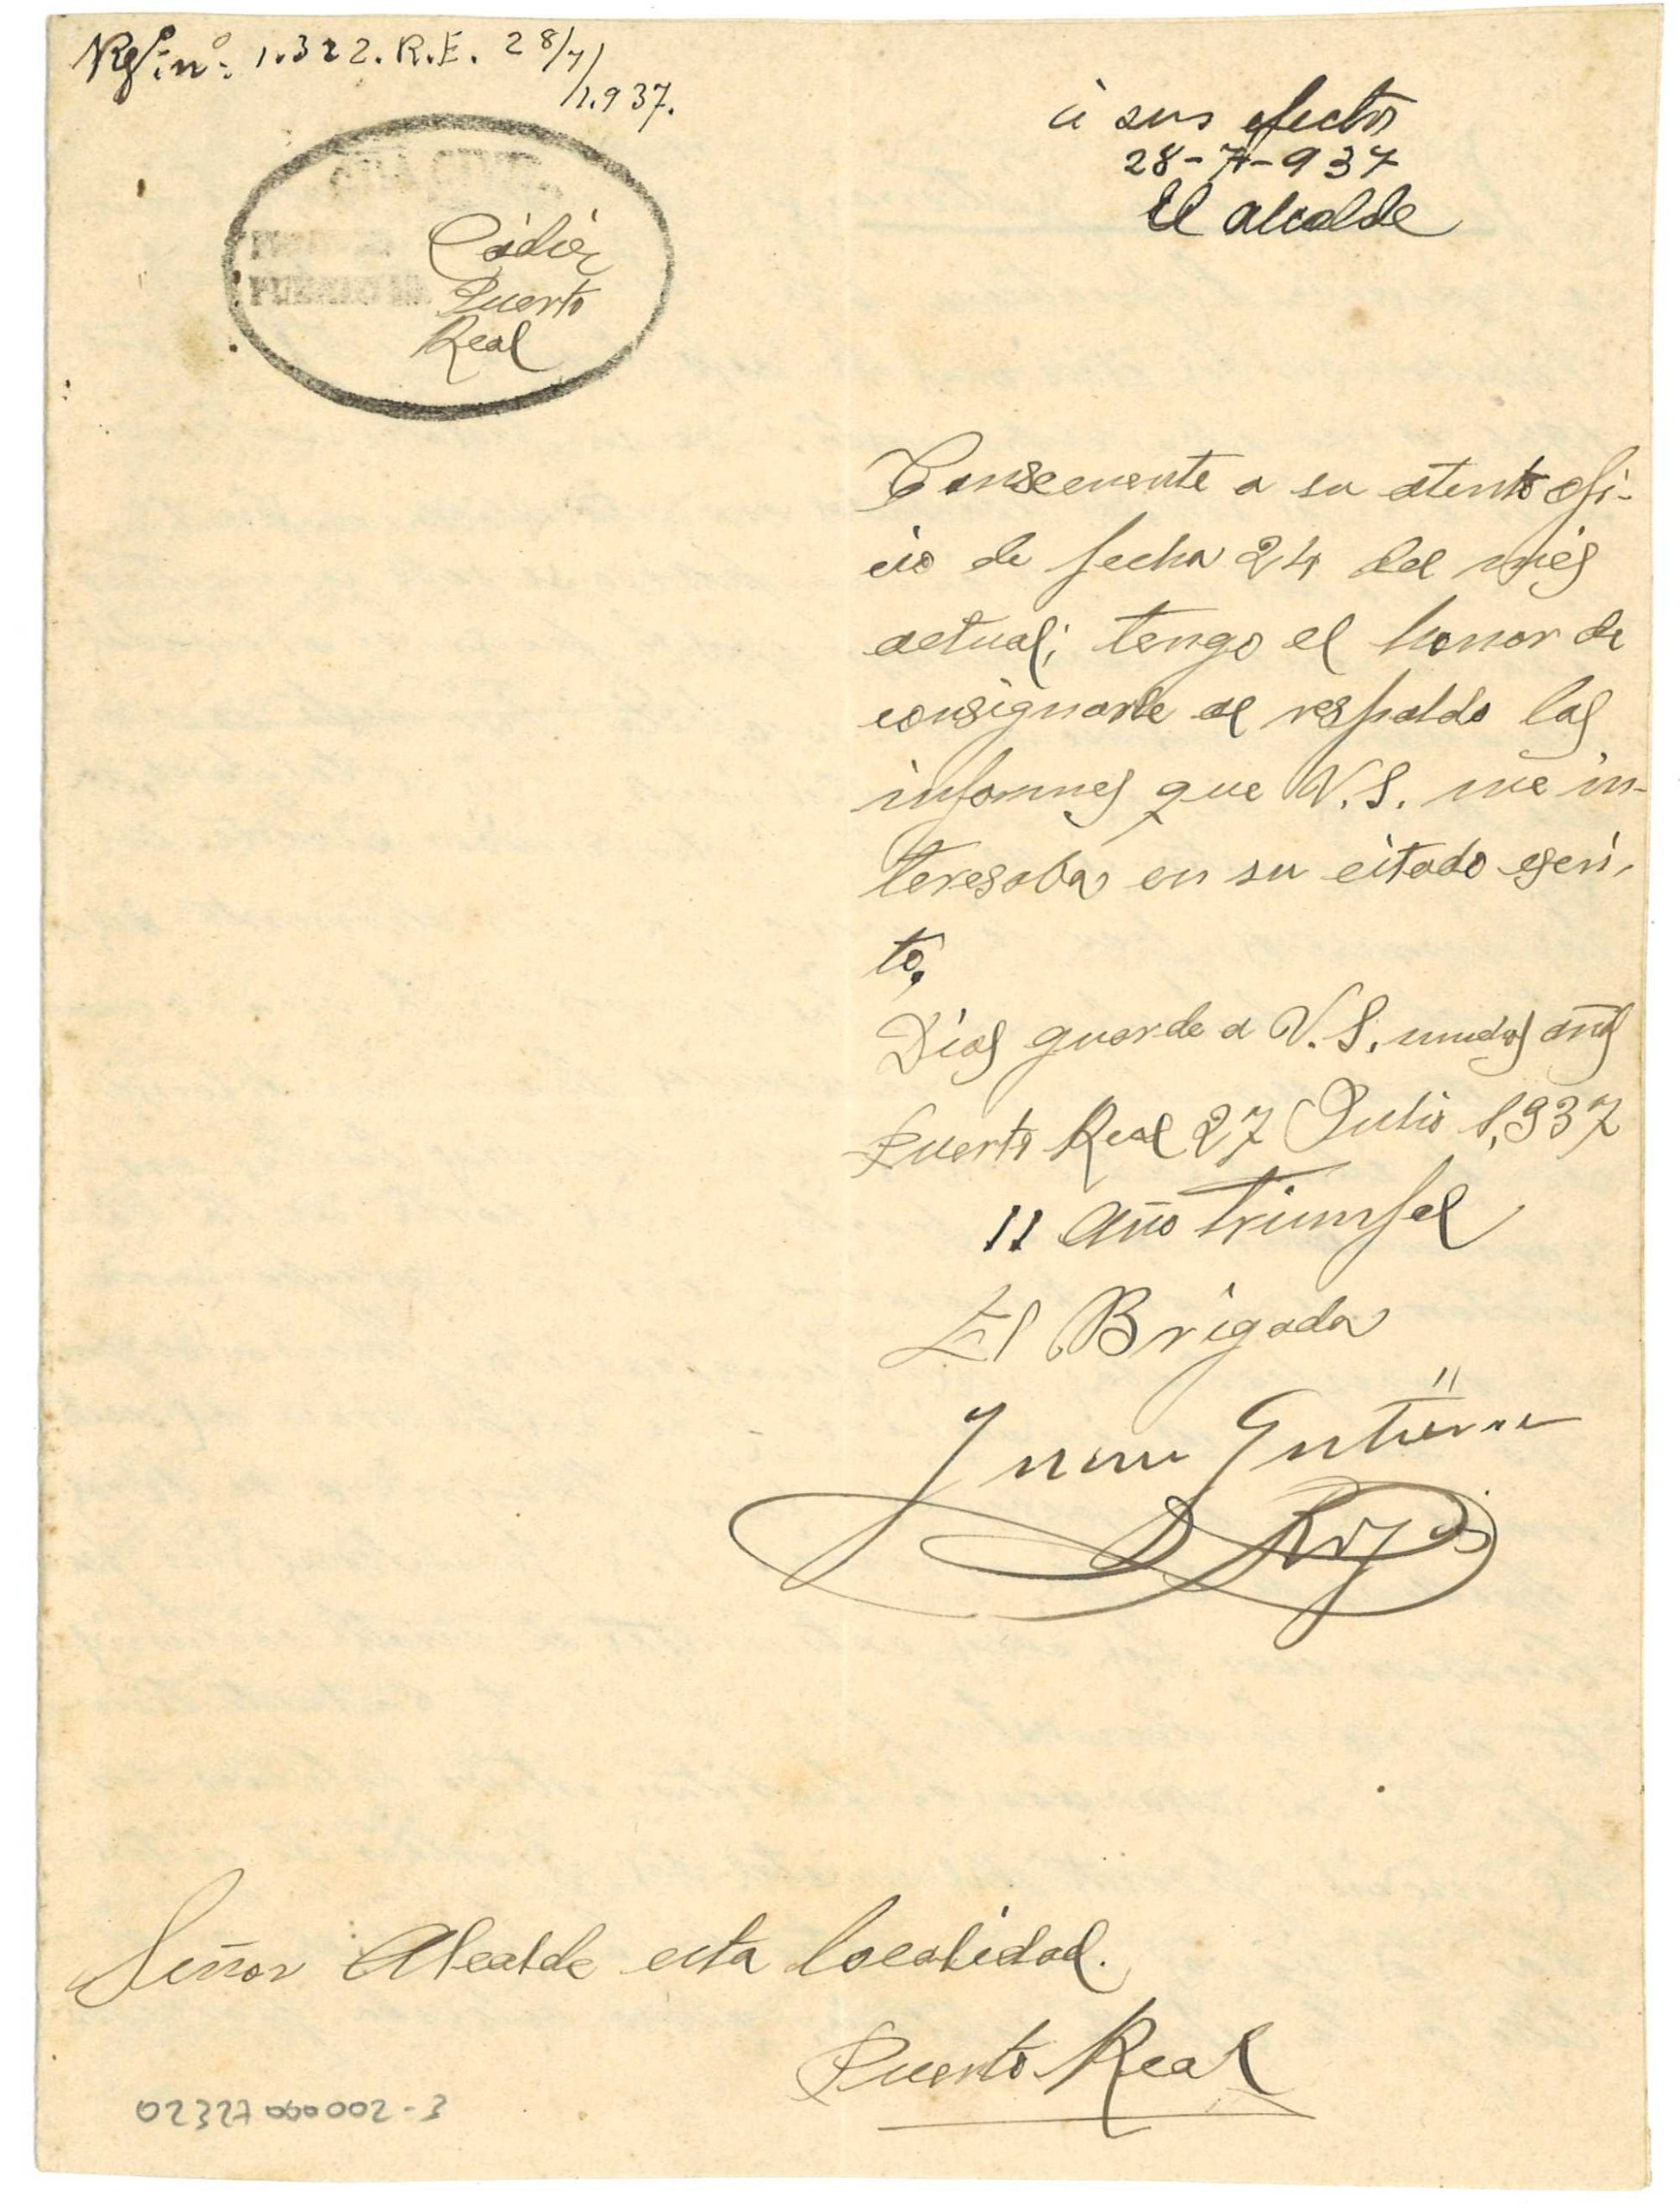 Rgº. nº. 1.322. R.E. 28/7/
1.937.
a sus efectos
28-7-937
El alcalde
GUARDIA CIVIL
Cádiz
PUESTO DE Puerto
Real
Consecuente a su atento ofi-
cio de fecha 24 del mes
actual; tengo el honor de
consignarle al respaldo los
informes que V.S. me in-
teresaba en su citado escri-
to.
Dios guarde a V.S. muchos años
Puerto Real 27 Julio 1,937
II Año triunfal
El Brigada
Juan Gutierrez
Rojas
Señor Alcalde esta localidad.
Puerto Real
02327000002-3